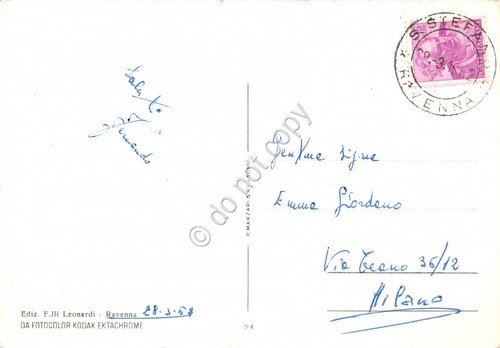 S. STEFANO
RAVENNA
Saluti
Fernando
Gen/ma Sigra
Emma Giordano
Via Teano 36/12
Milano
P. MARZARI
Ediz. F.lli Leonardi - Ravenna 28-3-68
DA FOTOCOLOR KODAK EKTACHROME
94
© do not copy